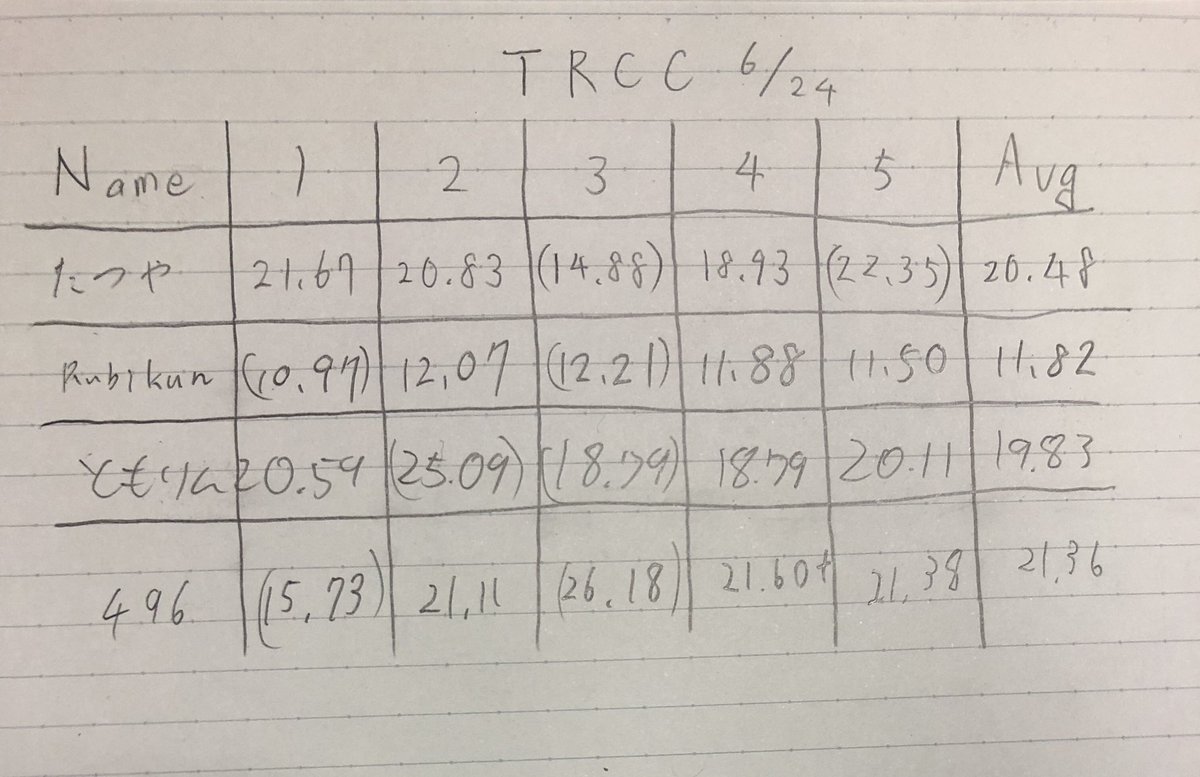 TRCC 6/24
Name 1 2 3 4 5 Avg
たつや 21.67 20.83 (14.88) 18.93 (22.35) 20.48
Rubikun (10.97) 12.07 (12.21) 11.88 11.50 11.82
ともりん 20.59 (25.09) (18.79) 18.79 20.11 19.83
496 (15.73) 21.11 (26.18) 21.60+ 21.38 21.36